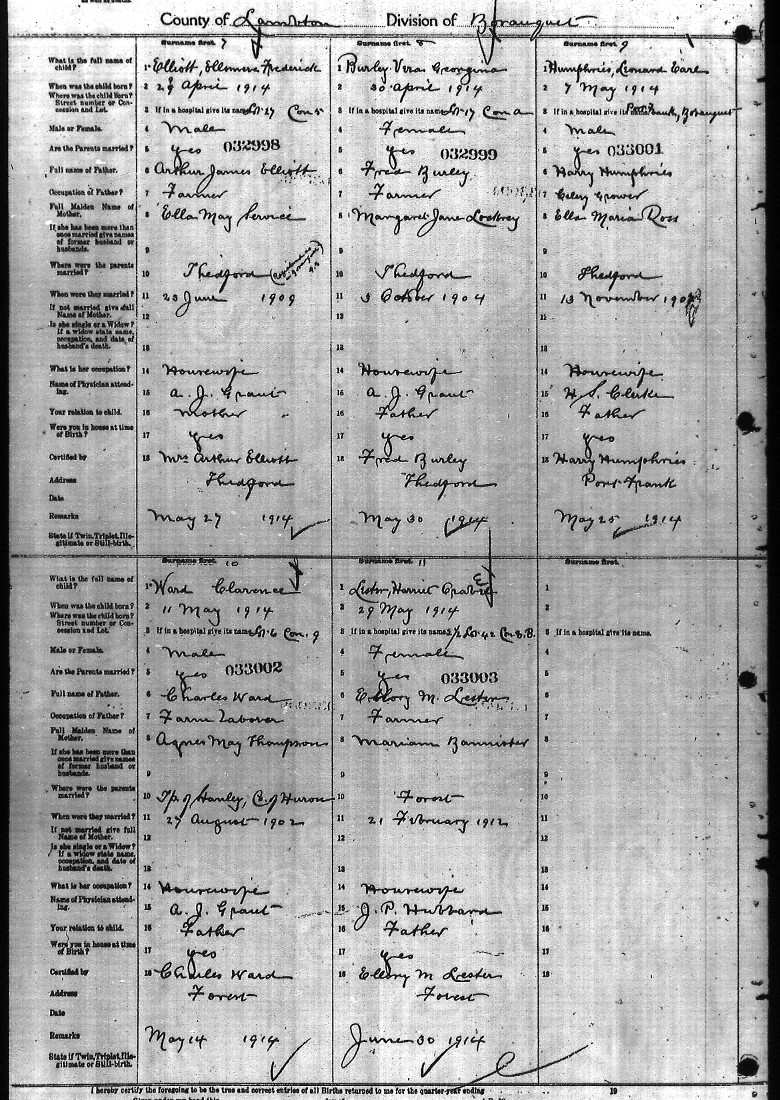 County of Lambton Division of Bosanquet
Surname first. 7 Surname first. 8 Surname first. 9
What is the full name of child? 1 Elliott, Frederick 1 Burley Vera Georgina 1 Humphries, Leonard Earl
When was the child born? 2 29 April 1914 2 30 April 1914 2 7 May 1914
Where was the child Born? Street number or Concession and Lot. 3 If in a hospital give its name. Lot 27 Con 5 3 If in a hospital give its name. Lot 17 Con a 3 If in a hospital give its name. Port Bosanquet
Male or Female. 4 Male 4 Female 4 Male
Are the Parents married? 5 yes 032998 5 yes 032999 5 yes 033001
Full name of Father. 6 Arthur James Elliott 6 Fred Burley 6 Harry Humphries
Occupation of Father? 7 Farmer 7 Farmer 7 Celery Grower
Full Maiden Name of Mother. 8 Ella May Service 8 Margaret Jane 8 Ella Maria Ross
If she has been more than once married give names of former husband or husbands. 9 9 9
Where were the parents married? 10 Thedford 10 Thedford 10 Thedford
When were they married? 11 23 June 1909 11 5 October 1904 11 13 November
If not married give full Name of Mother. 12 12 12
Is she single or a Widow? If a widow state name, occupation, and date of husband's death. 13 13
What is her occupation? 14 Housewife 14 Housewife 14 Housewife
Name of Physician attending. 15 A. J. Grant 15 A. J. Grant 15 H. S. Clerke
Your relation to child. 16 Mother 16 Father 16 Father
Were you in house at time of Birth? 17 yes 17 yes 17 yes
Certified by 18 Mrs Arthur Elliott 18 Fred Burley 18 Harry Humphries
Address Thedford Thedford Port Frank
Date
Remarks May 27 1914 May 30 1914 May 25 1914
State if Twin, Triplet, Illegitimate or Still-birth.
Surname first. 10 Surname first. 11 Surname first.
What is the full name of child? 1 Ward Clarence 1 Lester, Harriet 1
When was the child born? 2 11 May 1914 2 29 May 1914 2
Where was the child born? Street number or Concession and Lot. 3 If in a hospital give its name. Lot 6 Con. 9 3 If in a hospital give its name. Lot 42 3 If in a hospital give its name.
Male or Female. 4 Male 4 Female 4
Are the Parents married? 5 yes 033002 5 yes 033003 5
Full name of Father. 6 Charles Ward 6 Ellory M. Lester 6
Occupation of Father? 7 Farm Laborer 7 Farmer 7
Full Maiden Name of Mother. 8 Agnes May Thompson 8 Mariam Bannister 8
If she has been more than once married give names of former husband or husbands. 9 9 9
Where were the parents married? 10 Tp. of Stanley, Co. of Huron 10 Forest 10
When were they married? 11 27 August 1902 11 21 February 1912 11
If not married give full Name of Mother. 12 12 12
Is she single or a Widow? If a widow state name, occupation, and date of husband's death. 13 13 13
What is her occupation? 14 Housewife 14 Housewife 14
Name of Physician attending. 15 A. J. Grant 15 J. P. Hubbard 15
Your relation to child. 16 Father 16 Father 16
Were you in house at time of Birth? 17 yes 17 yes 17
Certified by 18 Charles Ward 18 Ellory M Lester 18
Address Forest Forest
Date
Remarks May 14 1914 June 30 1914
State if Twin, Triplet, Illegitimate or Still-birth.
I hereby certify the foregoing to be the true and correct entries of all Births returned to me for the quarter-year ending 19